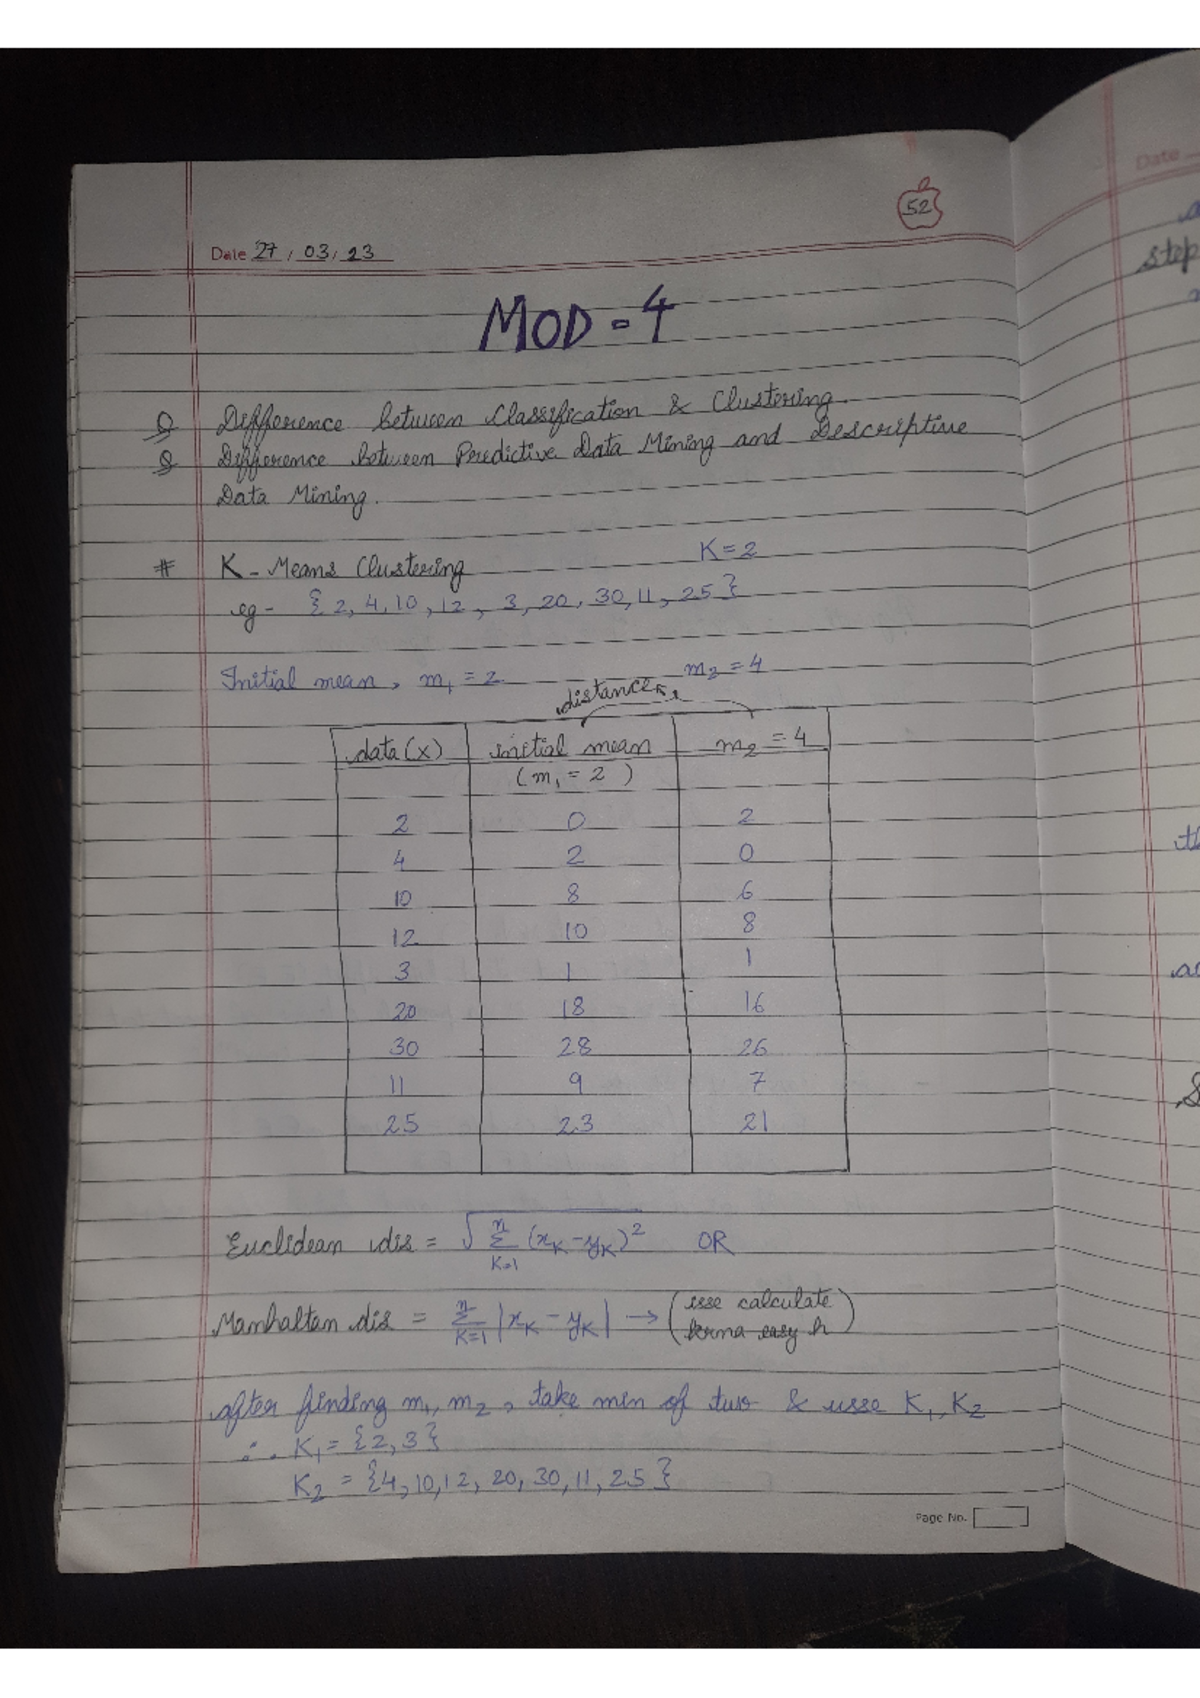 52
Date 27 / 03 / 23
MOD - 4
Q Difference between Classification & Clustering.
Q Difference between Predictive Data Mining and Descriptive
Data Mining.
# K - Means Clustering K = 2
eg - { 2, 4, 10, 12, 3, 20, 30, 11, 25 }
Initial mean, m₁ = 2 m₂ = 4
distance
data (x) initial mean m₂ = 4
( m₁ = 2 )
2 0 2
4 2 0
10 8 6
12 10 8
3 1 1
20 18 16
30 28 26
11 9 7
25 23 21
Euclidean dis = √ n Σ K=1 (xK - yK)² OR
Manhaltan dis = n Σ K=1 |xK - yK| → ( isse calculate
krna easy h )
after finding m₁, m₂, take min of two & usse K₁, K₂
∴ K₁ = {2, 3}
K₂ = {4, 10, 12, 20, 30, 11, 25 }
Page No.
Date
step
th